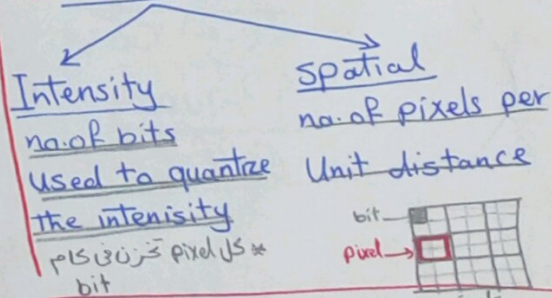 Intensity
no.of bits
used to quantize
the intenisity
* كل pixel تخزن فى كام
bit
Spatial
no.of pixels per
Unit distance
bit
pixel